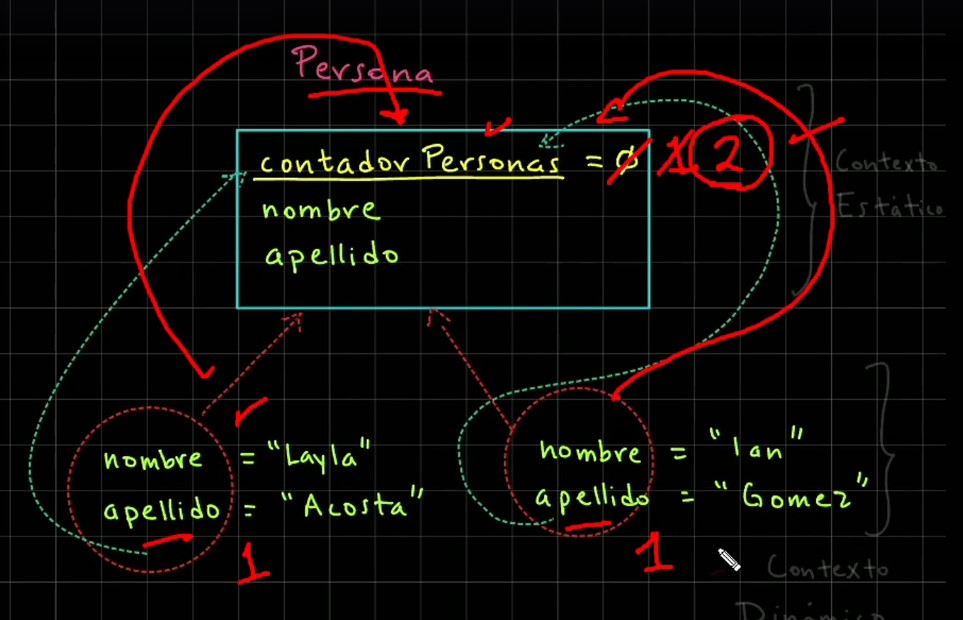 Persona
contador Personas = 0 1 2
nombre
apellido
Contexto
Estático
nombre = "Layla"
apellido = "Acosta"
1
nombre = "Ian"
apellido = "Gomez"
1
Contexto
Dinámico